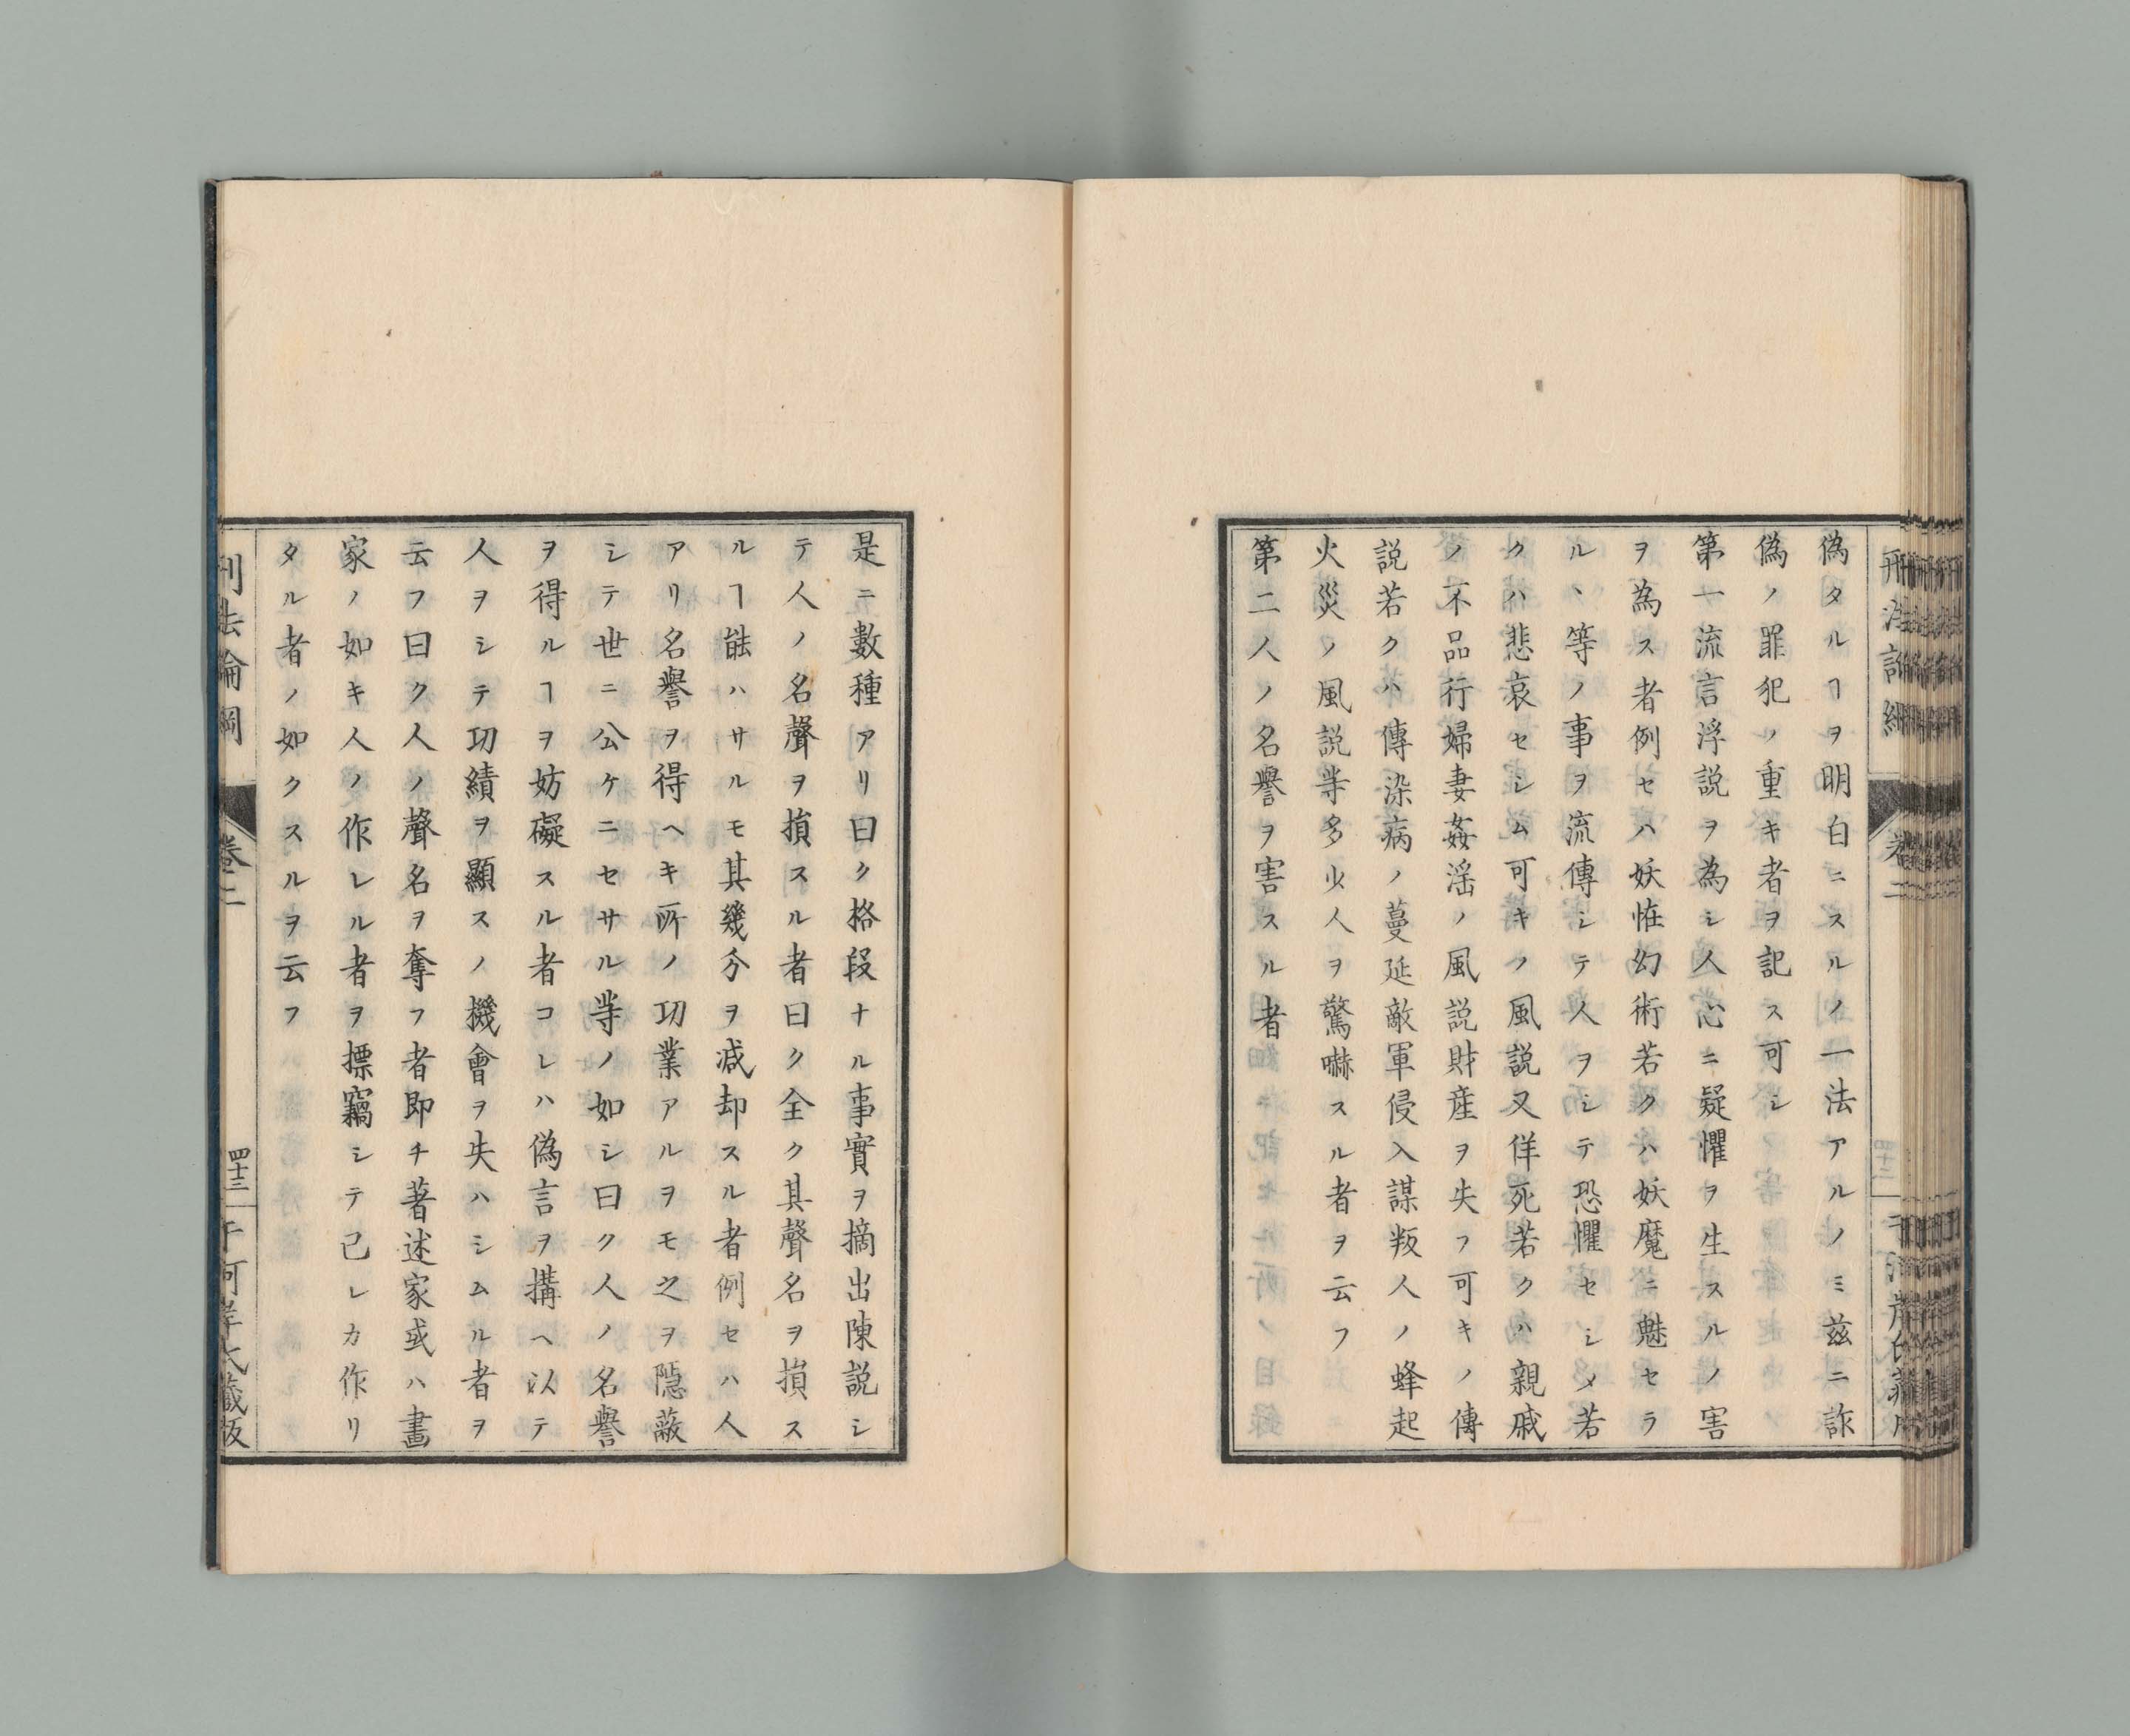 偽タルヿヲ明白ニスルノ一法アルノミ茲ニ詐
偽ノ罪犯ノ重キ者ヲ記ス可シ
第一流言浮説ヲ為シ人心ニ疑懼ヲ生スルノ害
ヲ為ス者例セハ妖恠幻術若クハ妖魔ニ魅セラ
ルヽ等ノ事ヲ流傳シテ人ヲシテ恐懼セシメ若
クハ悲哀セシム可キノ風説又佯死若クハ親戚
ノ不品行婦妻姦淫ノ風説財産ヲ失フ可キノ傳
説若クハ傳染病ノ蔓延敵軍侵入謀叛人ノ蜂起
火災ノ風説等多少人ヲ驚嚇スル者ヲ云フ
第二人ノ名譽ヲ害スル者
是ニ數種アリ曰ク格段ナル事實ヲ摘出陳説シ
テ人ノ名聲ヲ損スル者曰ク全ク其聲名ヲ損ス
ルヿ能ハサルモ其幾分ヲ減却スル者例セハ人
アリ名譽ヲ得ヘキ所ノ功業アルヲモ之ヲ隠蔽
シテ世ニ公ケニセサル等ノ如シ曰ク人ノ名譽
ヲ得ルヿヲ妨礙スル者コレハ偽言ヲ搆ヘ以テ
人ヲシテ功績ヲ顯スノ機會ヲ失ハシムル者ヲ
云フ曰ク人ノ聲名ヲ奪フ者即チ著述家或ハ畫
家ノ如キ人ノ作レル者ヲ摽竊シテ己レカ作リ
タル者ノ如クスルヲ云フ
刑法論綱
卷二
四十三